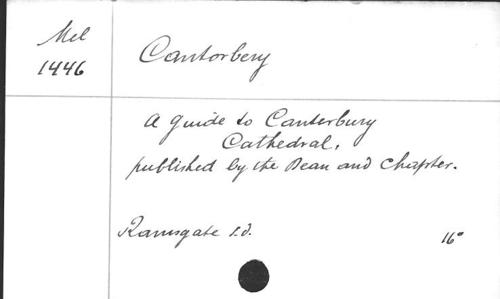 Mel
1446
Cantorbery
A guide to Canterbury
Cathedral,
published by the Dean and Chapter.
Ramsgate s.d.
16°